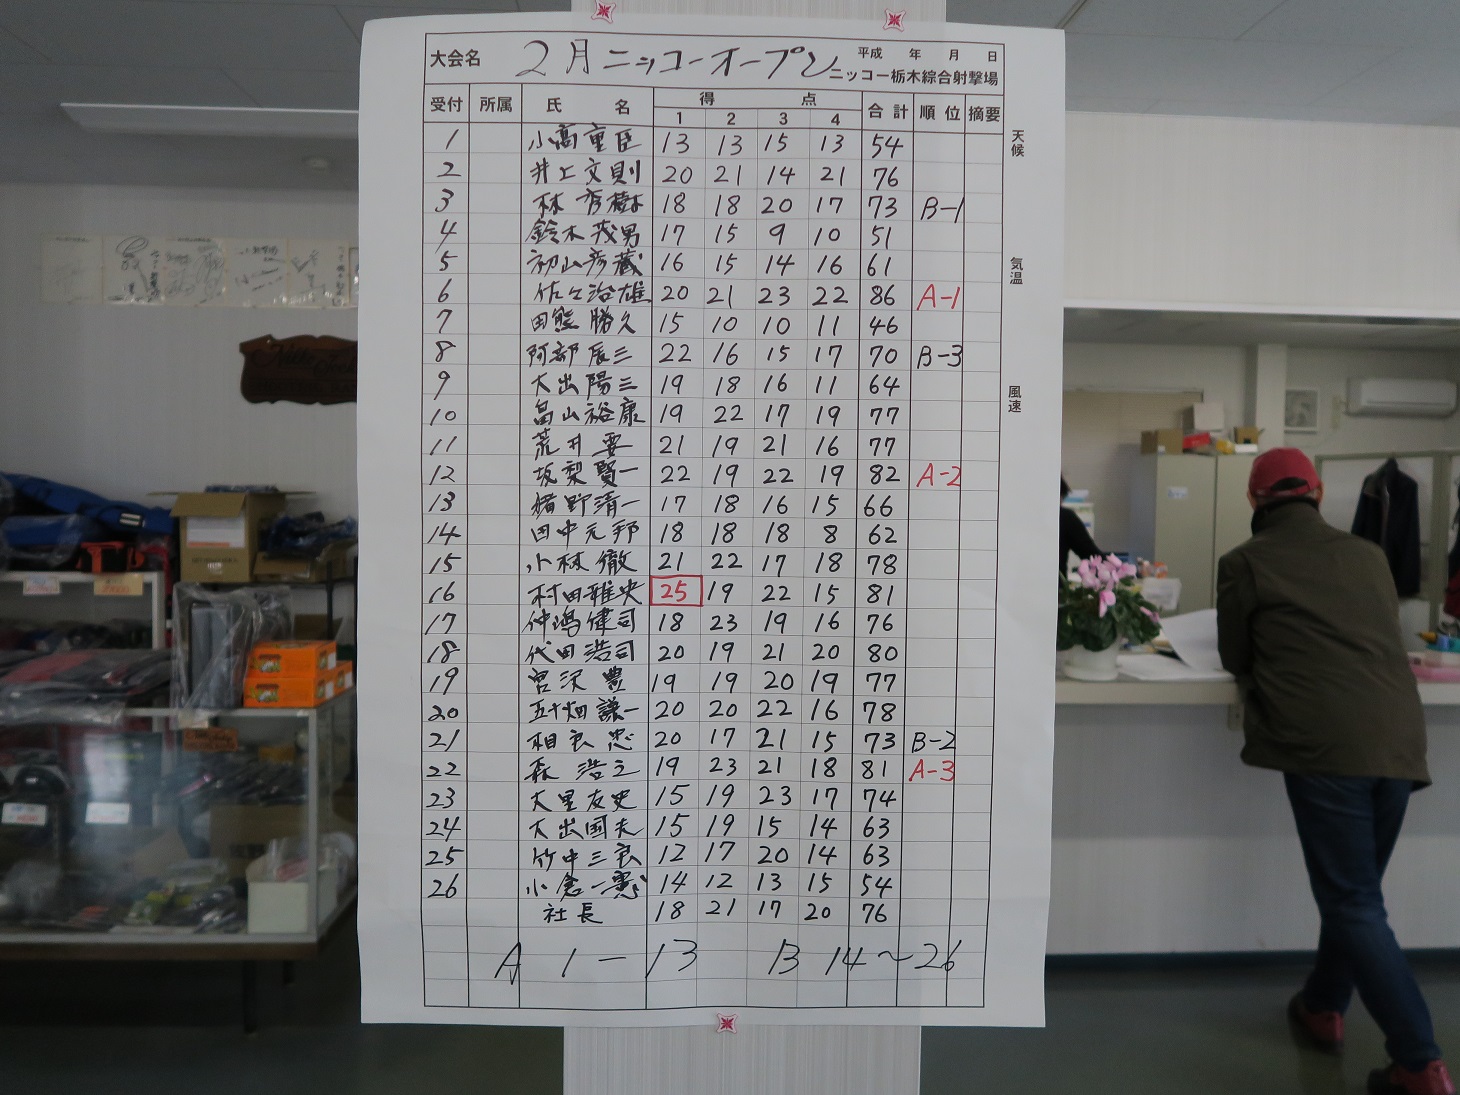 大会名 2月ニッコーオープン 平成 年 月 日
ニッコー栃木綜合射撃場
受付 所属 氏名 得点 合計 順位 摘要
1 2 3 4
天候
気温
風速
1 小高重臣 13 13 15 13 54
2 井上文則 20 21 14 21 76
3 林秀樹 18 18 20 17 73 B-1
4 鈴木茂男 17 15 9 10 51
5 初山彦蔵 16 15 14 16 61
6 佐々治雄 20 21 23 22 86 A-1
7 田熊勝久 15 10 10 11 46
8 阿部辰三 22 16 15 17 70 B-3
9 大出陽三 19 18 16 11 64
10 畠山裕康 19 22 17 19 77
11 荒井要 21 19 21 16 77
12 坂梨賢一 22 19 22 19 82 A-2
13 猪野清一 17 18 16 15 66
14 田中元邦 18 18 18 8 62
15 小林徹 21 22 17 18 78
16 村田雅史 25 19 22 15 81
17 仲嶋健司 18 23 19 16 76
18 代田浩司 20 19 21 20 80
19 宮沢豊 19 19 20 19 77
20 五十畑謙一 20 20 22 16 78
21 相良忠 20 17 21 15 73 B-2
22 森浩之 19 23 21 18 81 A-3
23 大里友史 15 19 23 17 74
24 大出国夫 15 19 15 14 63
25 竹中三良 12 17 20 14 63
26 小倉一憲 14 12 13 15 54
社長 18 21 17 20 76
A 1-13 B 14~26